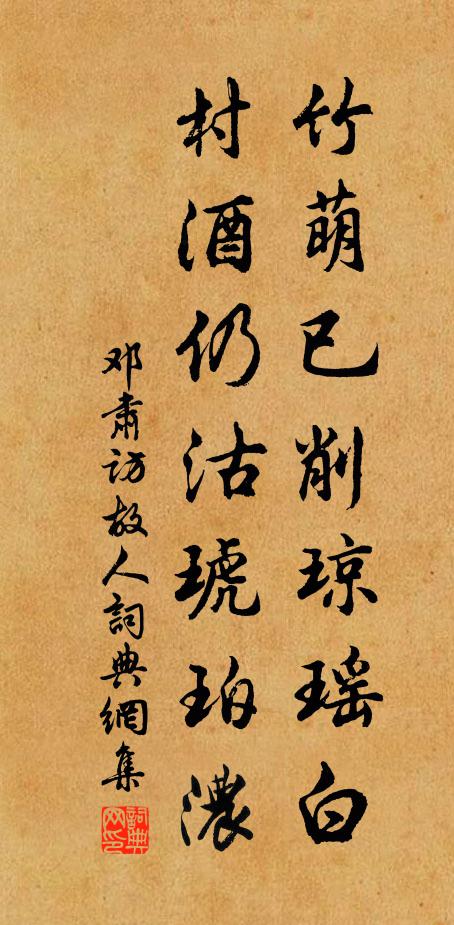 竹萌已削琼瑶白
村酒仍沽琥珀濃
邓肅访故人詞典網集
詞典网印